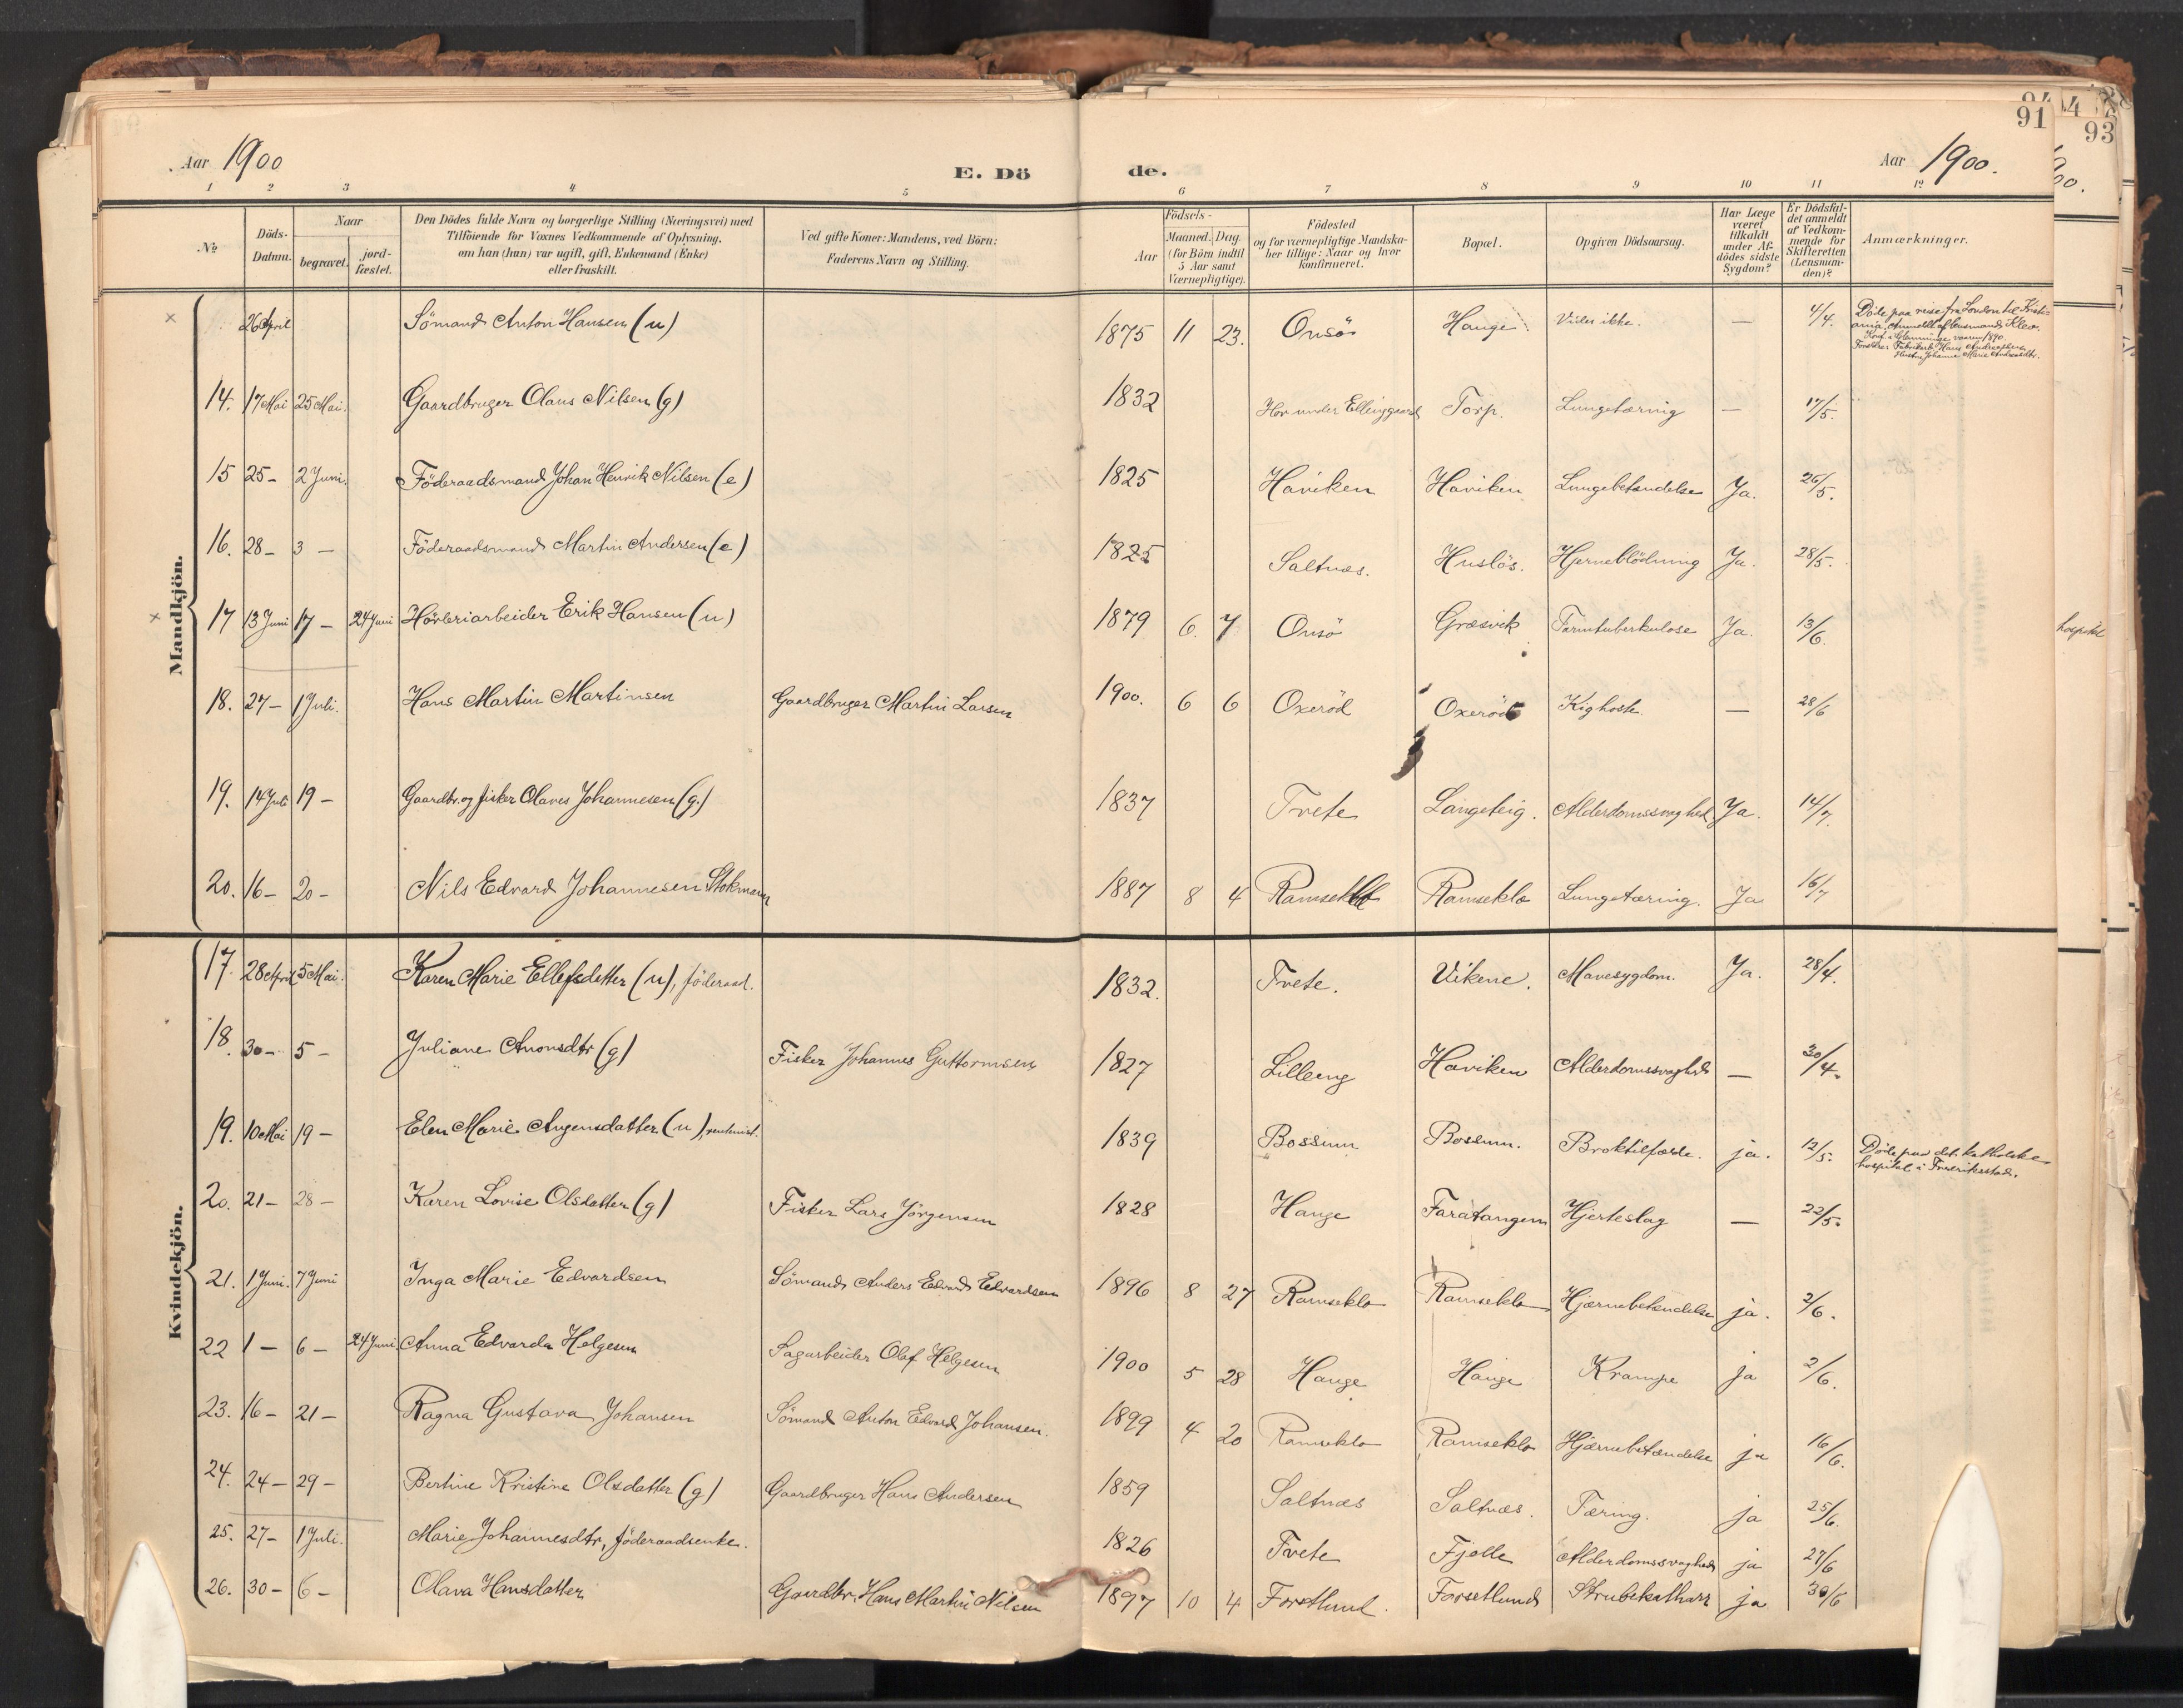 91
4
93
Aar 1900
E. Döde.
Aar 1900.
1 2 3 4 5 6 7 8 9 10 11 12
No
Döds-Datum.
Naar
begravet.
jord-fæstet.
Den Dödes fulde Navn og borgerlige Stilling (Næringsvei) med
Tilföiende for Voxnes Vedkommende af Oplysning,
om han (hun) var ugift, gift, Enkemand (Enke)
eller fraskilt.
Ved gifte Koner: Mandens, ved Börn:
Faderens Navn og Stilling.
Födsels-
Aar
Maaned. Dag.
(for Börn indtil
5 Aar samt
Værnepligtige).
Födested
og for værnepligtige Mandska-
ber tillige: Naar og hvor
konfirmeret.
Bopæl.
Opgiven Dödsaarsag.
Har Læge
været
tilkaldt
under Af-
dödes sidste
Sygdom?
Er Dödsfal-
det anmeldt
af Vedkom-
mende for
Skifteretten
(Lensman-
den)?
Anmærkninger.
Mandkjön.
26 April Sömand Anton Hansen (u) 1875 11 23. Onsö Hauge Vides ikke. — 4/4. Döde paa reise fra London til Kristi-
ania. Anmeldt af lensmand Klev.
Konf. i Glemminge vaaren 1890.
Forældre: Fabrikarb. Hans Andreassen
Hustru Johanne Marie Andreasdtr.
14. 17 Mai 25 Mai. Gaardbruger Olaus Nilsen (g) 1832 Hov under Ellinggaard Torp. Lungetæring — 17/5.
15 25 – 2 Juni. Föderaadsmand Johan Henrik Nilsen (e) 1825 Haviken Haviken Lungebetændelse Ja. 26/5.
16. 28 – 3 – Föderaadsmand Martin Andersen (e) 1825 Saltnæs. Huslös. Hjerneblödning Ja. 28/5.
17 13 Juni 17 – 24 Juni Hövleriarbeider Erik Hansen (u) 1879 6. 7 Onsö Græsvik Tarmtuberkulose Ja. 13/6.
18. 27 – 1 Juli. Hans Martin Martinsen Gaardbruger Martin Larsen 1900. 6 6 Oxeröd Oxeröd Kighoste — 28/6
19. 14 Juli 19 – Gaardbr. og fisker Olaves Johannesen (g.) 1837 Tvete Langeteig. Alderdomssvaghed Ja. 14/7.
20. 16 – 20 – Nils Edvard Johannesen Stokmann 1887 8 4 Ramseklo Ramseklo Lungetæring. Ja 16/7
Kvindekjön.
17. 28 April 5 Mai. Karen Marie Ellefsdatter (u), föderaad. 1832. Tvete. Vikene. Mavesygdom. Ja. 28/4.
18. 30 – 5 – Juliane Anonsdtr (g) Fisker Johannes Guttormsen 1827 Lilleeng Haviken Alderdomssvaghed — 30/4.
19. 10 Mai 19 – Elen Marie Augensdatter (u), rentenist. 1839 Bossum Bossum. Broktilfælde. ja. 12/5. Döde paa det katholske
hospital i Fredriksstad.
20. 21 – 28 – Karen Lovise Olsdatter (g) Fisker Lars Jörgensen 1828 Hauge Faratangen Hjerteslag — 22/5.
21. 1 Juni. 7 Juni Inga Marie Edvardsen Sömand Anders Edvard Edvardsen 1896 8 27 Ramseklo Ramseklo Hjærnebetændelse ja. 2/6.
22 1 – 6 – 24 Juni. Anna Edvarda Helgesen Sagarbeider Olaf Helgesen 1900 5 28 Hauge Hauge Krampe ja 2/6.
23. 16 – 21 – Ragna Gustava Johansen Sömand Anton Edvard Johansen. 1899 4 20 Ramseklo Ramseklo Hjærnebetændelse ja 16/6.
24. 24 – 29 – Bertine Kristine Olsdatter (g) Gaardbruger Hans Andersen 1859 Saltnæs Saltnæs. Tæring. ja 25/6.
25. 27 – 1 Juli. Marie Johannesdtr, föderaadsenke. 1826 Tvete Fjelle Alderdomssvaghed ja 27/6
26. 30 – 6 – Olava Hansdatter Gaardbr. Hans Martin Nilsen 1897 10 4 Forsetlund. Forsetlund Strubekatharr ja 30/6
hospital